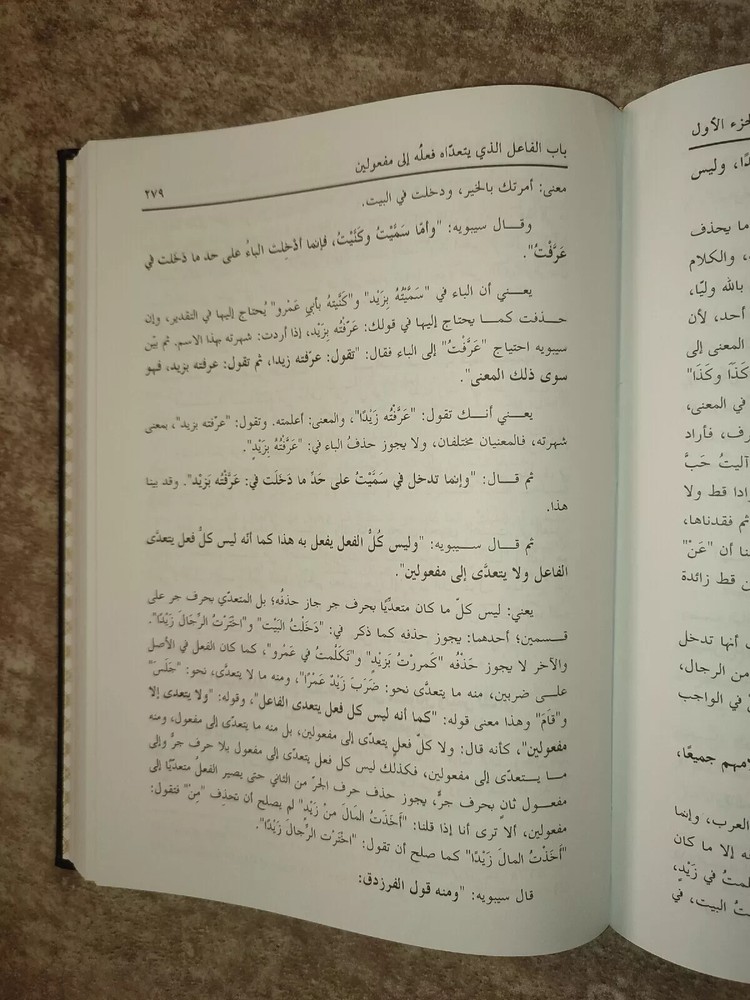 باب الفاعل الذي يتعدّاه فعلُه إلى مفعولين
٢٧٩
معنى: أمرتك بالخير، ودخلت في البيت.
وقال سيبويه: "وأمّا سَمَّيْتُ وكَنَّيْتُ، فإنما أُدْخِلت الباءُ على حد ما دَخَلت في
عَرَّفْتُ".
يعني أن الباء في "سَمَّيْتُهُ بِزَيْد" و"كَنَّيتهُ بأبي عَمْرو" يُحتاج إليها في التقدير، وإن
حذفت كما يحتاج إليها في قولك: عَرّفْته بِزَيْد، إذا أردت: شهرته بهذا الاسم. ثم بيّن
سيبويه احتياج "عَرَّفْتُ" إلى الباء فقال: "تقول: عرّفته زيدا، ثم تقول: عرفته بزيد، فهو
سوى ذلك المعنى".
يعني أنك تقول: "عَرَّفْتُه زَيْدًا"، والمعنى: أعلمته. وتقول: "عرّفته بزيد"، بمعنى
شهرته، فالمعنيان مختلفان، ولا يجوز حذفُ الباء في: "عَرَّفْتُهُ بِزَيْدٍ".
ثم قال: "وإنما تدخل في سَمَّيْتُ على حَدِّ ما دَخَلَت في: عَرَّفْتُه بَزَيْد". وقد بينا
هذا.
ثم قال سيبويه: "وليس كُلُّ الفعل يفعل به هذا كما أنّه ليس كلُّ فعل يتعدَّى
الفاعل ولا يتعدَّى إلى مفعولين".
يعني: ليس كلّ ما كان متعديًا بحرف جر جاز حذفُه؛ بل المتعدّي بحرف جر على
قسمين؛ أحدهما: يجوز حذفه كما ذكر في: "دَخَلْتُ البَيْت" و"اخْتَرْتُ الرِّجَالَ زَيْدًا".
والآخر لا يجوز حَذْفُه "كَمررْتُ بَزَيْدٍ" و"تَكَلَّمتُ في عَمْرو"، كما كان الفعل في الأصل
على ضربين، منه ما يتعدَّى نحو: ضَرَبَ زَيْدٌ عَمْرًا"، ومنه ما لا يتعدَّى، نحو: "جَلَسَ"
و"قَامَ" وهذا معنى قوله: "كما أنه ليس كل فعل يتعدى الفاعل"، وقوله: "ولا يتعدى إلا
مفعولين"، كأنه قال: ولا كلّ فعلٍ يتعدّى إلى مفعولين، بل منه ما يتعدّى إلى مفعول، ومنه
ما يتعدّى إلى مفعولين، فكذلك ليس كل فعل يتعدّى إلى مفعول بلا حرف جرٍّ وإلى
مفعول ثانٍ بحرف جرٍّ، يجوز حذف حرف الجرّ من الثاني حتى يصير الفعلُ متعديًا إلى
مفعولين، ألا ترى أنا إذا قلنا: "أَخَذتُ المَالَ مِنْ زَيْدٍ" لم يصلح أن تحذِف "مِنْ" فتقول:
"أَخَذْتُ المالَ زَيْدًا" كما صلح أن تقول: "اخْتَرْت الرِّجالَ زَيْدًا".
قال سيبويه: "ومنه قول الفرزدق:
الجزء الأول
وليس
ما يحذف
والكلام
بالله وليًا،
أحد، لأن
المعنى إلى
كَذَا وكَذَا"
في المعنى،
فأراد
آليتُ حَبَّ
قط ولا
ثم فقدناها،
أن "عَنْ"
قط زائدة
أنها تدخل
من الرجال،
في الواجب
جميعًا،
العرب، وإنما
إلا ما كان
في زَيْدٍ،
البيت، في